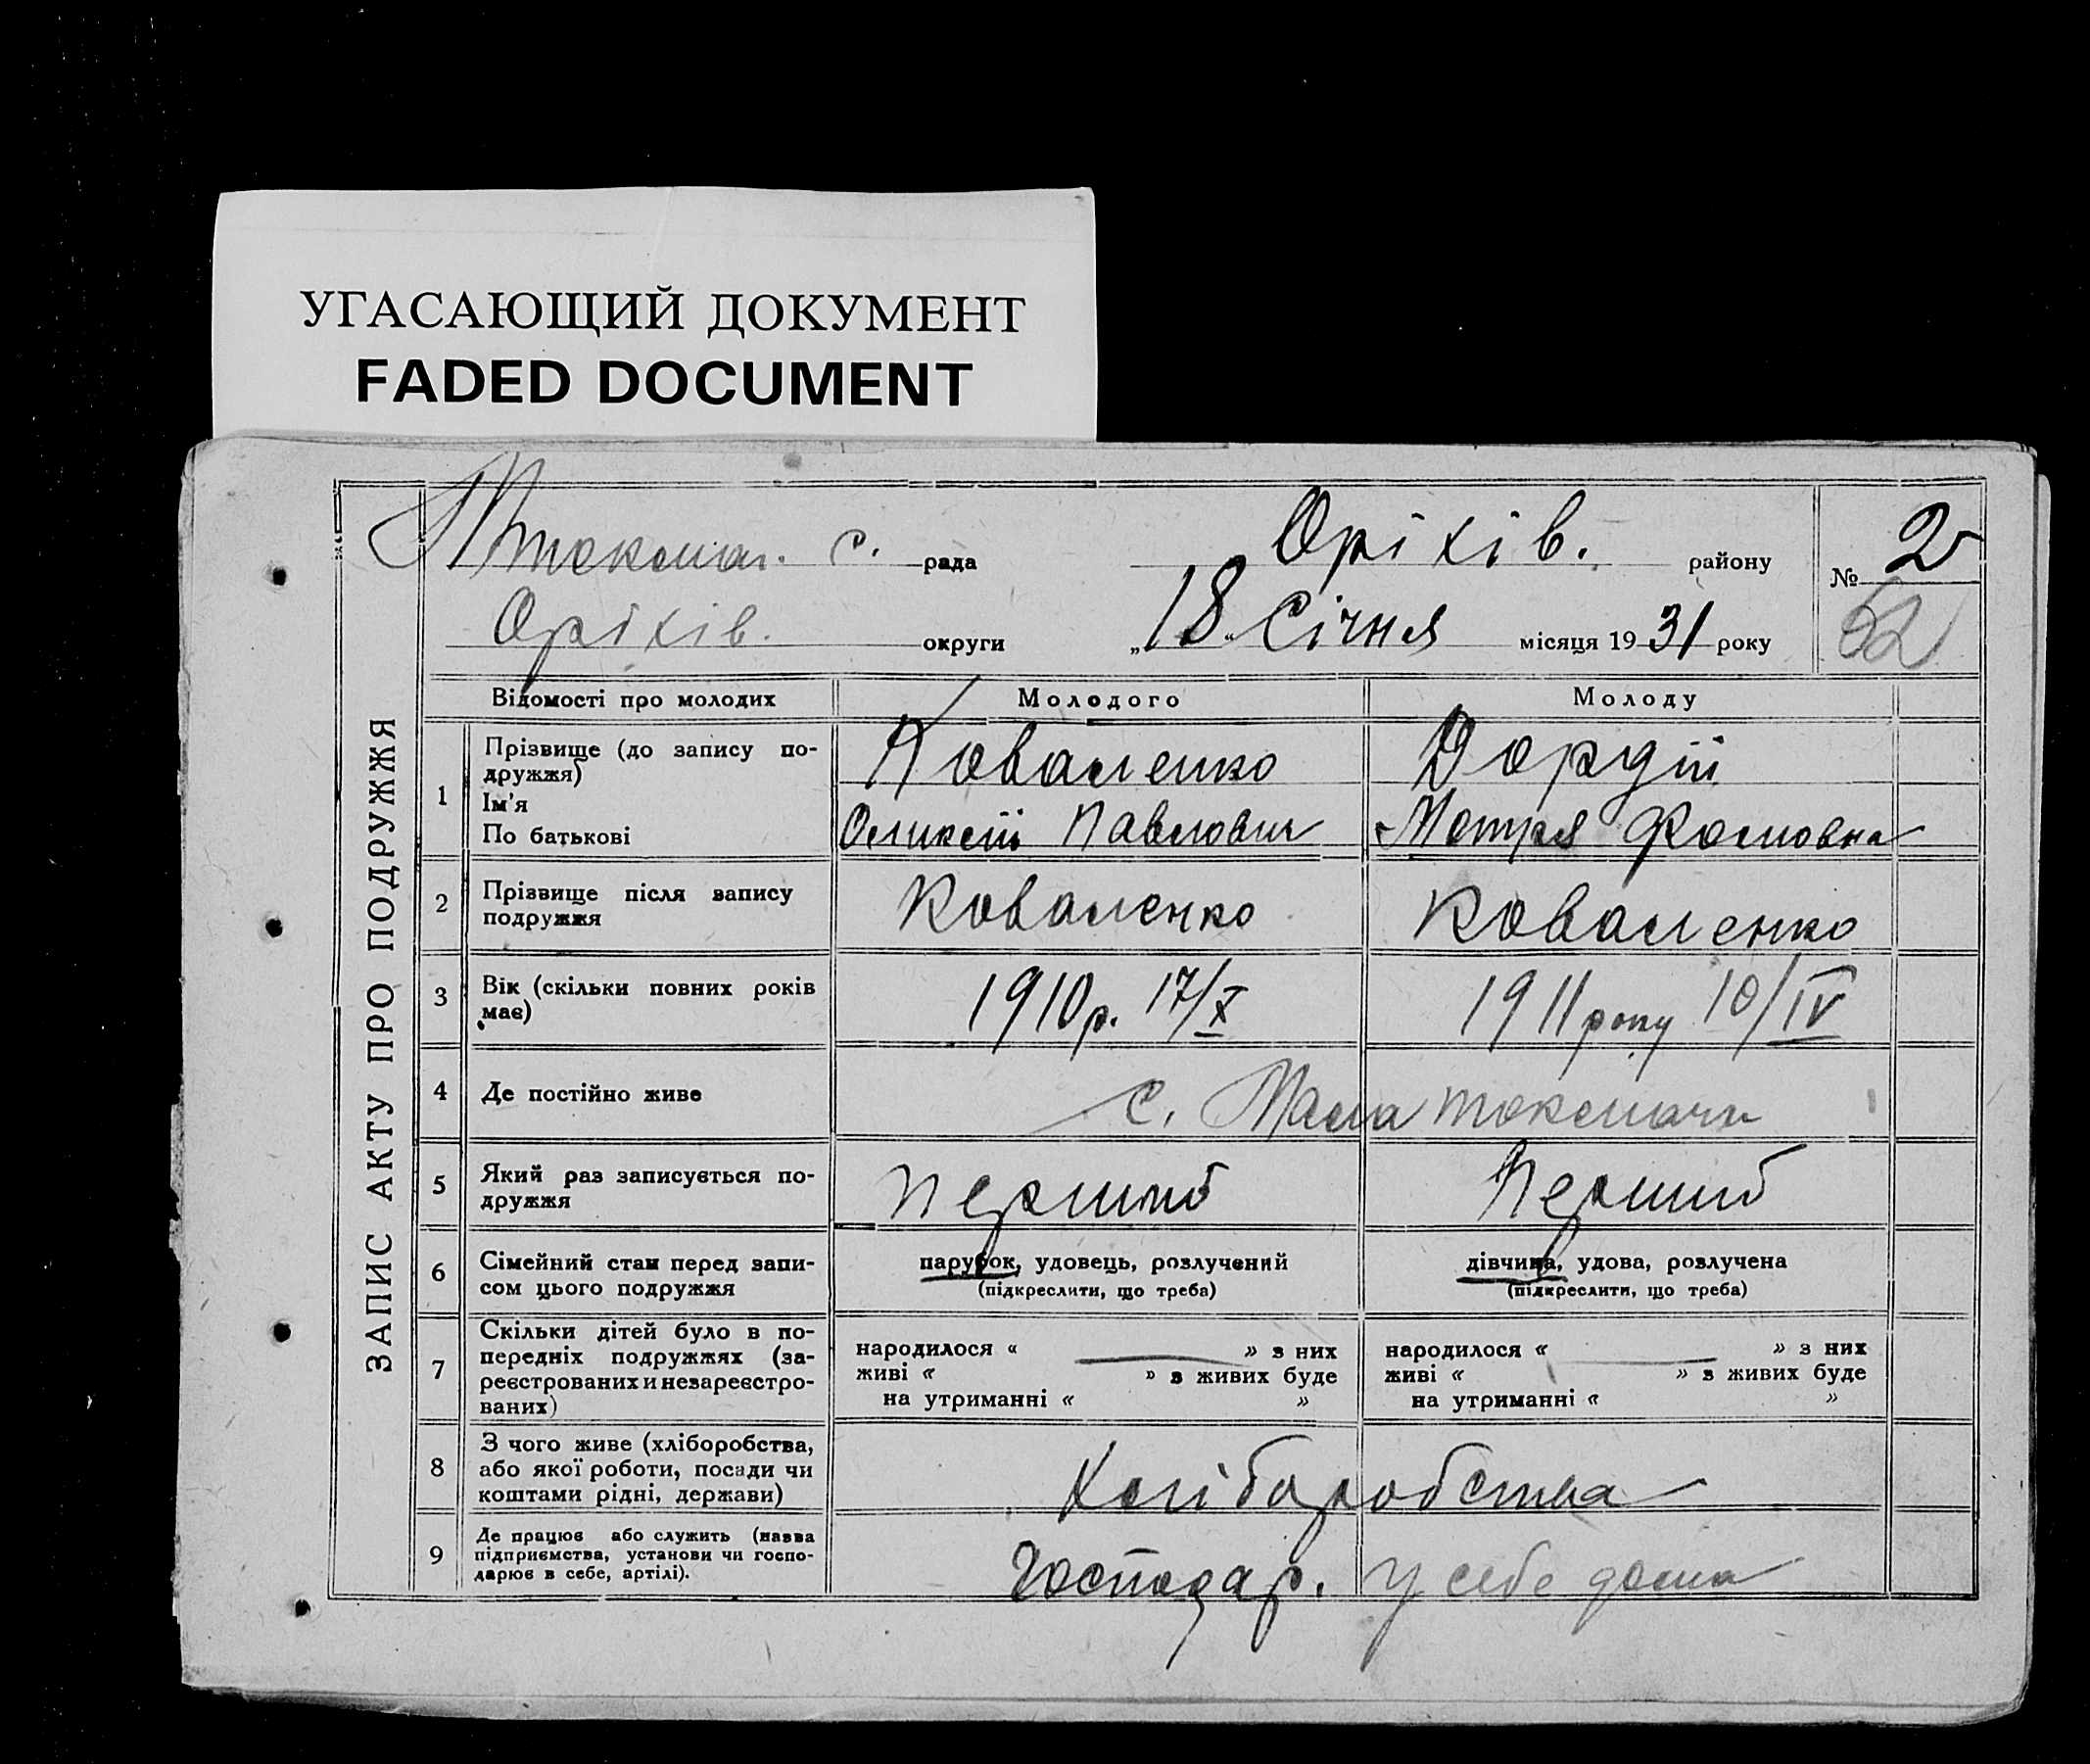 УГАСАЮЩИЙ ДОКУМЕНТ
FADED DOCUMENT
ЗАПИС АКТУ ПРО ПОДРУЖЖЯ
с. рада Оріхів. району № 2
Оріхів. округи „18" Січня місяця 1931 року 62
Відомості про молодих Молодого Молоду
1 Прізвище (до запису по-
дружжя) Коваленко Дордій
Ім'я
По батькові Оликсій Павлович Мотря Фомовна
2 Прізвище після запису
подружжя Коваленко Коваленко
3 Вік (скільки повних років
має) 1910р. 17/X 1911 року 10/IV
4 Де постійно живе с. Мала Токмачи
5 Який раз записується по-
дружжя перший Перший
6 Сімейний стан перед запи-
сом цього подружжя
парубок, удовець, розлучений
(підкреслити, що треба)
дівчина, удова, розлучена
(підкреслити, що треба)
7 Скільки дітей було в по-
передніх подружжях (за-
реєстрованих и незареєстро-
ваних)
народилося « » з них
живі « » з живих буде
на утриманні « »
народилося « » з них
живі « » з живих буде
на утриманні « »
8 З чого живе (хліборобства,
або якої роботи, посади чи
коштами рідні, держави)
Хліборобства
9 Де працює або служить (назва
підприємства, установи чи госпо-
дарює в себе, артілі).
Господар. у себе дома